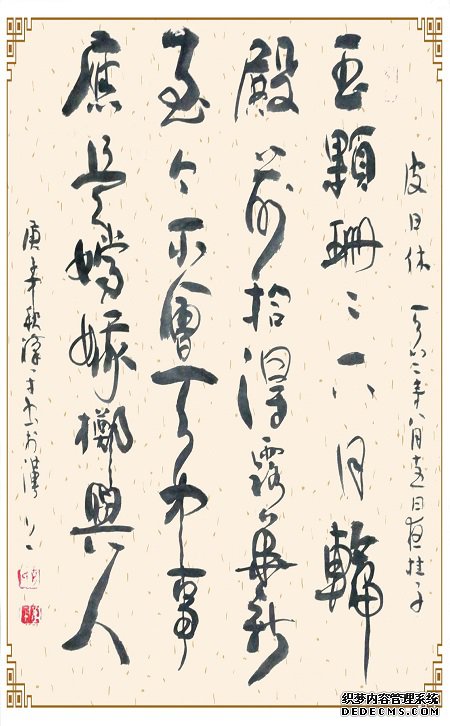 皮日休 天竺寺八月十五日夜桂子
玉顆珊〻下月輪
殿前拾得露華新
至今不會天中事
應是嫦娥擲與人
庚寅秋 書於漢上
织梦内容管理系统
DEDECMS.COM